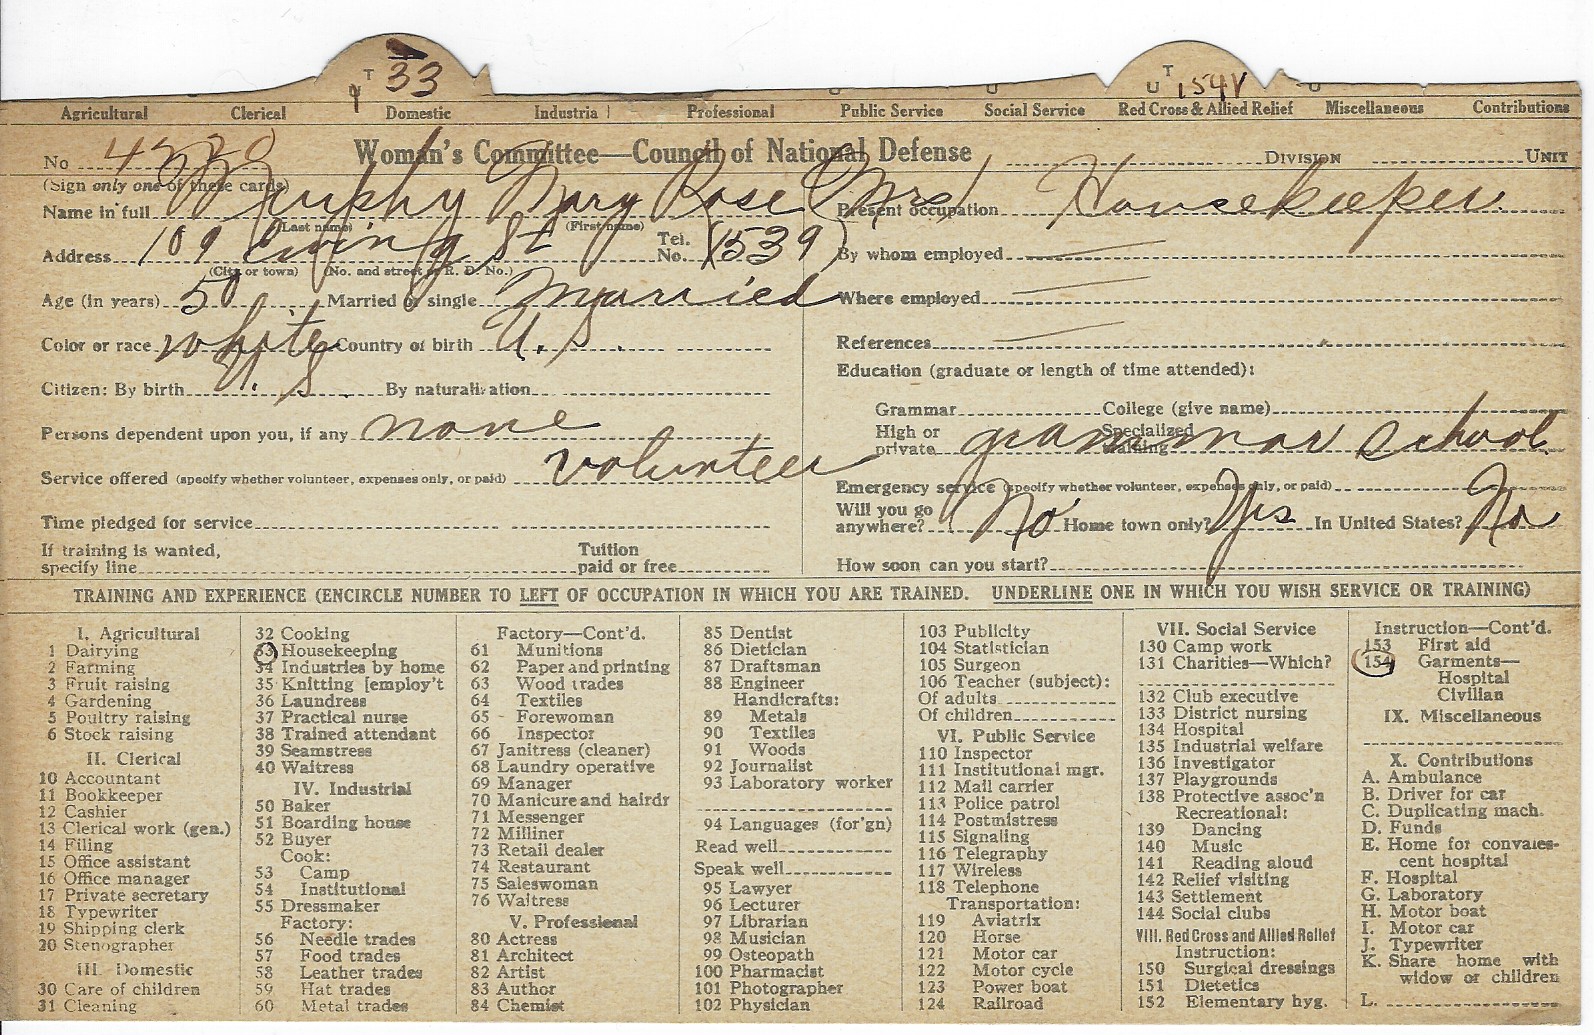 T 33
T U 154V
Agricultural Clerical Domestic Industrial Professional Public Service Social Service Red Cross & Allied Relief Miscellaneous Contributions
No Woman's Committee—Council of National Defense DIVISION UNIT
(Sign only one of these cards)
Name in full Murphy Mary Rose (Mrs)
(Last name) (First name)
Address 109 Ewing St Tel. No. (1539)
(City or town) (No. and street or R. D. No.)
Age (in years) 50 Married or single Married
Color or race white Country of birth U. S.
Citizen: By birth U. S. By naturalization
Persons dependent upon you, if any none
Service offered (specify whether volunteer, expenses only, or paid) volunteer
Time pledged for service
If training is wanted, specify line Tuition paid or free
Present occupation Housekeeper
By whom employed
Where employed
References
Education (graduate or length of time attended):
Grammar College (give name)
High or private grammar school Specialized training
Emergency service (specify whether volunteer, expenses only, or paid)
Will you go anywhere? No Home town only? Yes In United States? No
How soon can you start?
TRAINING AND EXPERIENCE (ENCIRCLE NUMBER TO LEFT OF OCCUPATION IN WHICH YOU ARE TRAINED. UNDERLINE ONE IN WHICH YOU WISH SERVICE OR TRAINING)
I. Agricultural
1 Dairying
2 Farming
3 Fruit raising
4 Gardening
5 Poultry raising
6 Stock raising
II. Clerical
10 Accountant
11 Bookkeeper
12 Cashier
13 Clerical work (gen.)
14 Filing
15 Office assistant
16 Office manager
17 Private secretary
18 Typewriter
19 Shipping clerk
20 Stenographer
III. Domestic
30 Care of children
31 Cleaning
32 Cooking
33 Housekeeping
34 Industries by home
35 Knitting [employ't
36 Laundress
37 Practical nurse
38 Trained attendant
39 Seamstress
40 Waitress
IV. Industrial
50 Baker
51 Boarding house
52 Buyer
Cook:
53 Camp
54 Institutional
55 Dressmaker
Factory:
56 Needle trades
57 Food trades
58 Leather trades
59 Hat trades
60 Metal trades
Factory—Cont'd.
61 Munitions
62 Paper and printing
63 Wood trades
64 Textiles
65 Forewoman
66 Inspector
67 Janitress (cleaner)
68 Laundry operative
69 Manager
70 Manicure and hairdr
71 Messenger
72 Milliner
73 Retail dealer
74 Restaurant
75 Saleswoman
76 Waitress
V. Professional
80 Actress
81 Architect
82 Artist
83 Author
84 Chemist
85 Dentist
86 Dietician
87 Draftsman
88 Engineer
Handicrafts:
89 Metals
90 Textiles
91 Woods
92 Journalist
93 Laboratory worker
94 Languages (for'gn)
Read well
Speak well
95 Lawyer
96 Lecturer
97 Librarian
98 Musician
99 Osteopath
100 Pharmacist
101 Photographer
102 Physician
103 Publicity
104 Statistician
105 Surgeon
106 Teacher (subject):
Of adults
Of children
VI. Public Service
110 Inspector
111 Institutional mgr.
112 Mail carrier
113 Police patrol
114 Postmistress
115 Signaling
116 Telegraphy
117 Wireless
118 Telephone
Transportation:
119 Aviatrix
120 Horse
121 Motor car
122 Motor cycle
123 Power boat
124 Railroad
VII. Social Service
130 Camp work
131 Charities—Which?
132 Club executive
133 District nursing
134 Hospital
135 Industrial welfare
136 Investigator
137 Playgrounds
138 Protective assoc'n
Recreational:
139 Dancing
140 Music
141 Reading aloud
142 Relief visiting
143 Settlement
144 Social clubs
VIII. Red Cross and Allied Relief
Instruction:
150 Surgical dressings
151 Dietetics
152 Elementary hyg.
Instruction—Cont'd.
153 First aid
154 Garments—
Hospital
Civilian
IX. Miscellaneous
X. Contributions
A. Ambulance
B. Driver for car
C. Duplicating mach.
D. Funds
E. Home for convales-
cent hospital
F. Hospital
G. Laboratory
H. Motor boat
I. Motor car
J. Typewriter
K. Share home with
widow or children
L.